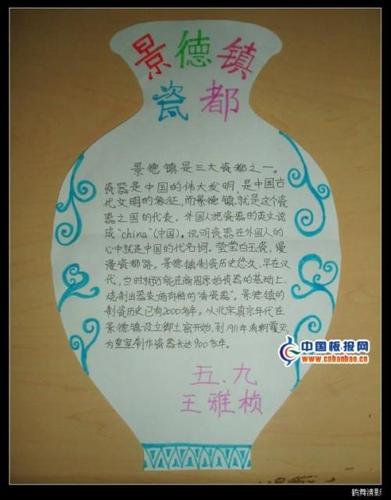 景德镇
瓷都
景德镇是三大瓷都之一。
瓷器是中国的伟大发明,是中国古
代文明的象征,而景德镇,就是这个瓷
器之国的代表。外国人把瓷器的英文说
成"china"(中国)。说明瓷器在外国人的
心中就是中国的代名词。莹莹白玉瓷,漫
漫瓷都路。景德镇制瓷历史悠久,早在汉
代,当时就能在商周原始瓷器的基础上,
制瓷历史已有2000多年。从北宋真宗年代在
景德镇设立御土窑开始,到1911年清朝
为皇室制作瓷器长达900多年。
五.九
王雅桢
中国板报网
www.cnbanbao.cn
鹤舞清影